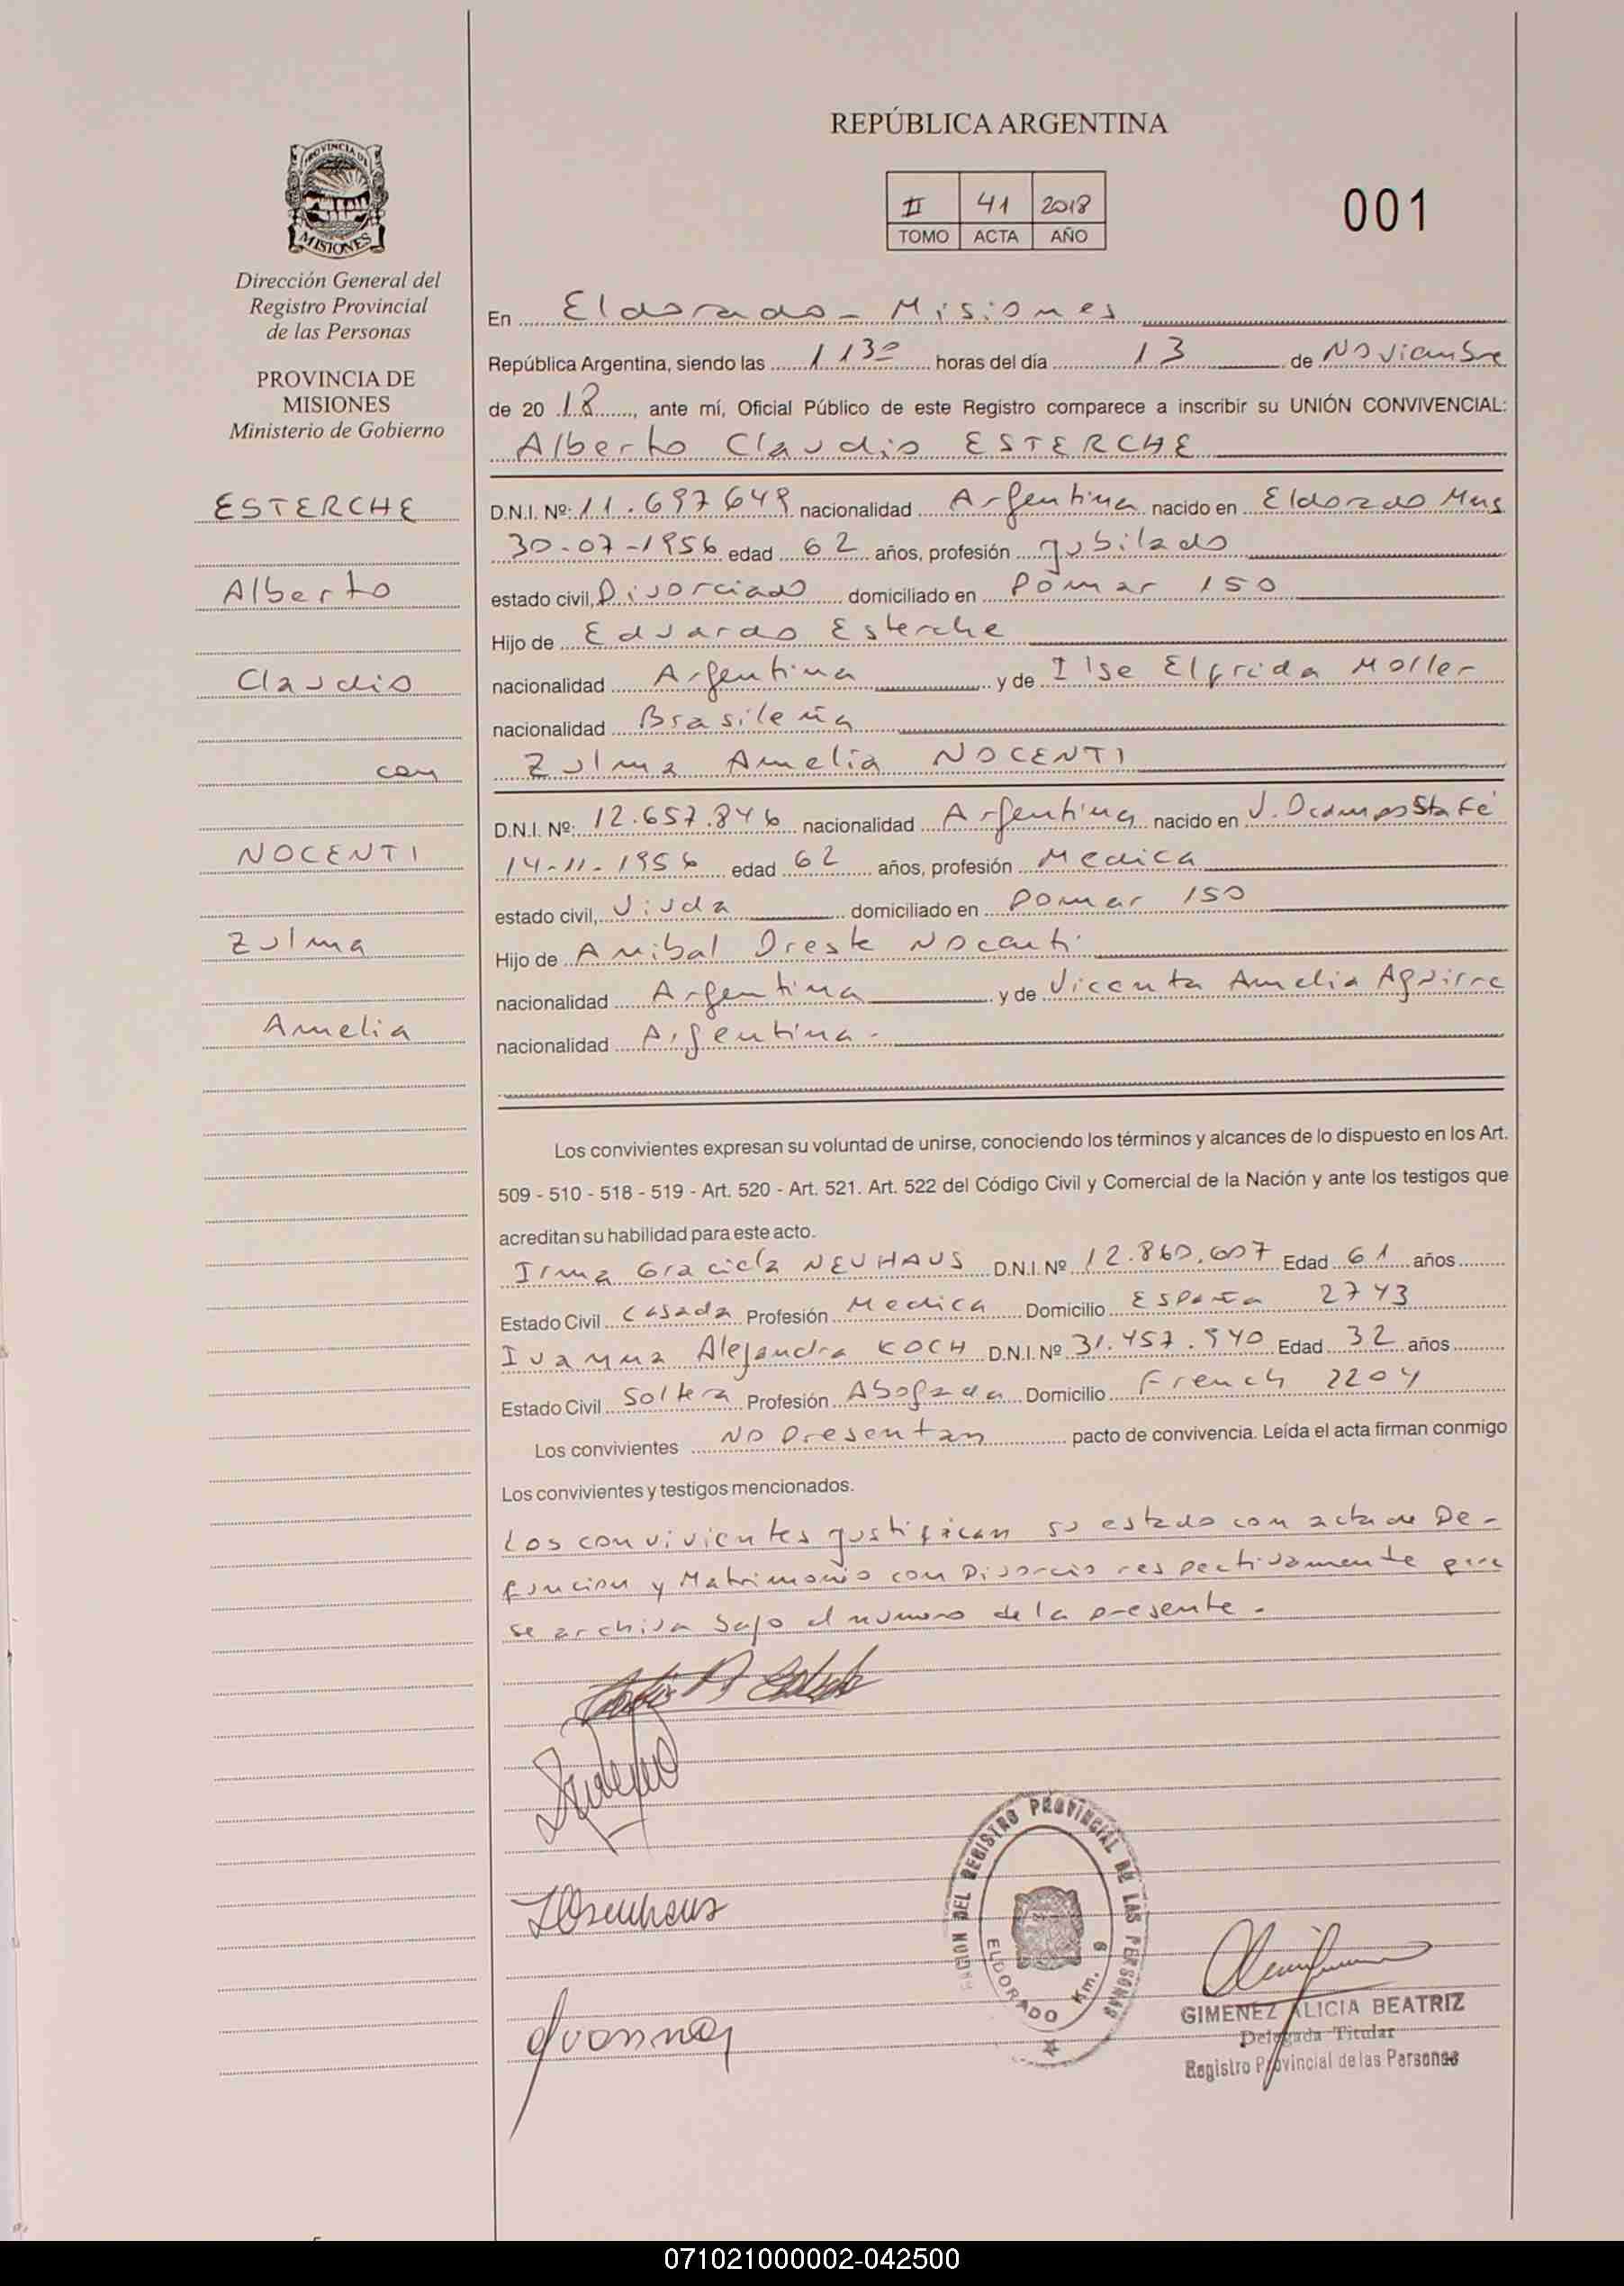 REPÚBLICA ARGENTINA
II 41 2018
TOMO ACTA AÑO
001
PROVINCIA DE
MISIONES
Dirección General del
Registro Provincial
de las Personas
PROVINCIA DE
MISIONES
Ministerio de Gobierno
ESTERCHE
Alberto
Claudio
con
NOCENTI
Zulma
Amelia
En Eldorado - Misiones
República Argentina, siendo las 1130 horas del día 13 de Noviembre
de 2018, ante mí, Oficial Público de este Registro comparece a inscribir su UNIÓN CONVIVENCIAL:
Alberto Claudio ESTERCHE
D.N.I. Nº: 11.697.649 nacionalidad Argentina nacido en Eldorado Mnes
30-07-1956 edad 62 años, profesión jubilado
estado civil, Divorciado domiciliado en Pomar 150
Hijo de Eduardo Esterche
nacionalidad Argentina y de Ilse Elfrida Moller
nacionalidad Brasileña
Zulma Amelia NOCENTI
D.N.I. Nº: 12.657.846 nacionalidad Argentina nacido en V. Ocampo Sta Fé
14-11-1956 edad 62 años, profesión Medica
estado civil, Viuda domiciliado en Pomar 150
Hijo de Anibal Oreste Nocenti
nacionalidad Argentina y de Vicenta Amelia Aguirre
nacionalidad Argentina -
Los convivientes expresan su voluntad de unirse, conociendo los términos y alcances de lo dispuesto en los Art.
509 - 510 - 518 - 519 - Art. 520 - Art. 521. Art. 522 del Código Civil y Comercial de la Nación y ante los testigos que
acreditan su habilidad para este acto.
Irma Graciela NEUHAUS D.N.I. Nº 12.860.607 Edad 61 años
Estado Civil Casada Profesión Medica Domicilio España 2743
Ivanna Alejandra KOCH D.N.I. Nº 31.457.940 Edad 32 años
Estado Civil Soltera Profesión Abogada Domicilio French 2204
Los convivientes No Presentan pacto de convivencia. Leída el acta firman conmigo
Los convivientes y testigos mencionados.
Los convivientes justifican su estado con acta de De-
funcion y Matrimonio con Divorcio respectivamente que
se archiva bajo el numero de la presente.
DEL REGISTRO PROVINCIAL DE LAS PERSONAS
ELDORADO Km. 9
GIMENEZ ALICIA BEATRIZ
Delegada Titular
Registro Provincial de las Personas
071021000002-042500